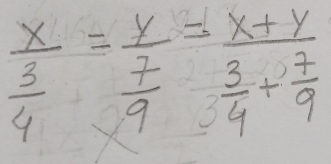 x/(3/4) = y/(7/9) = x+y/(3/4 + 7/9)